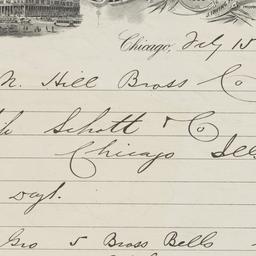 Chicago, July 15
N. Hill Brass Co
Schott & Co
Chicago Ills
Days.
Gro 5 Brass Bells